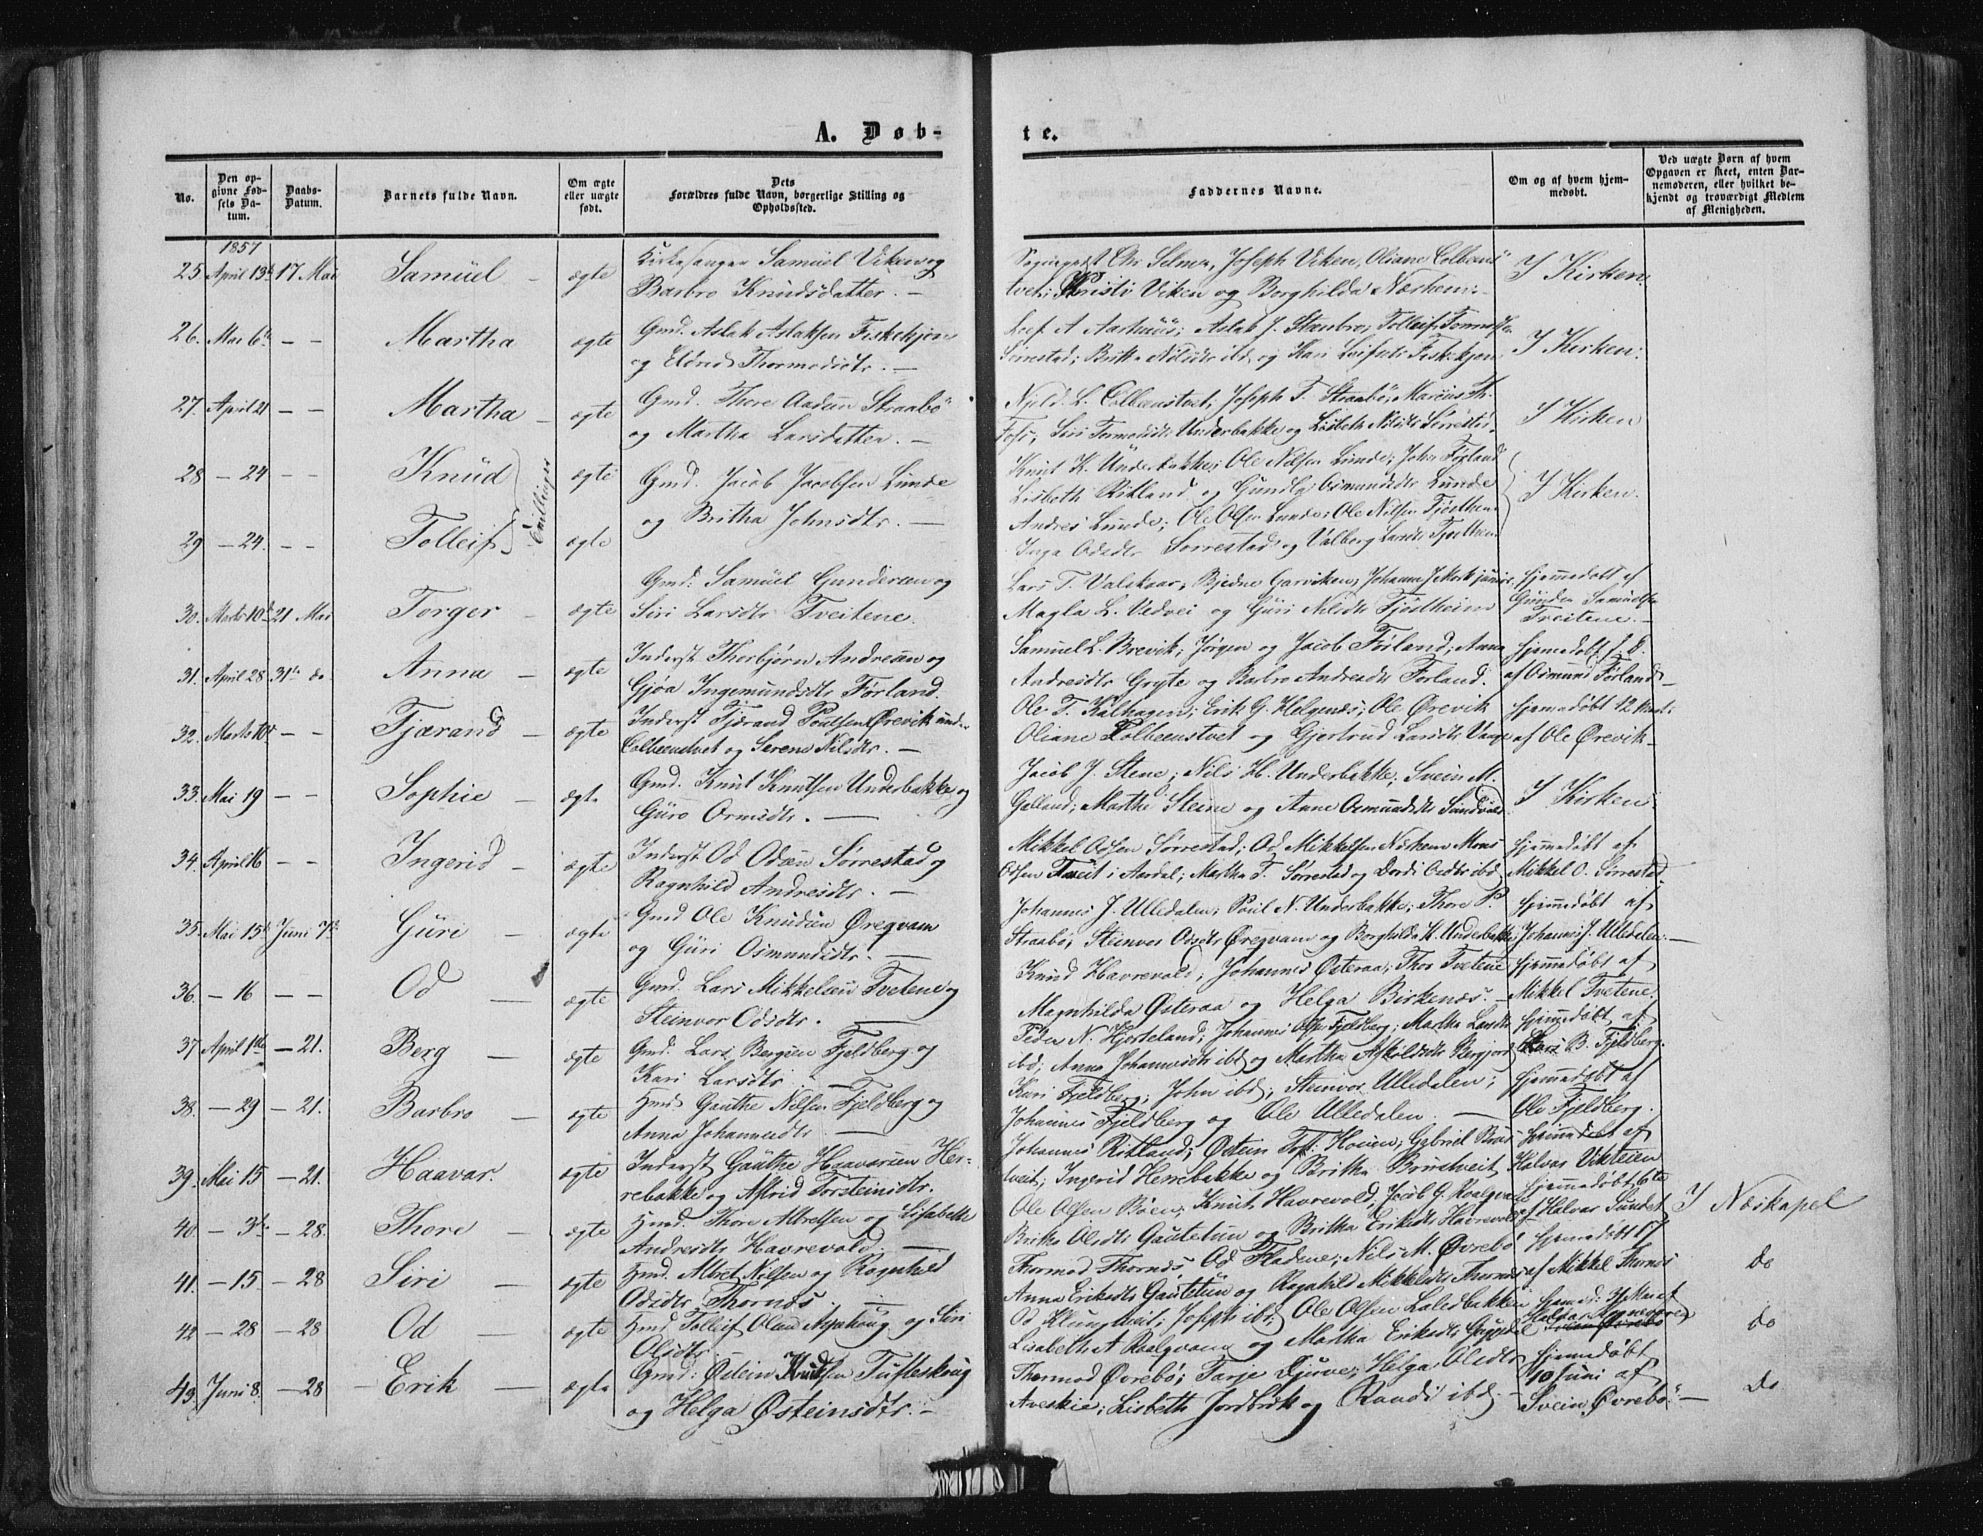 A. Døb-
te.
No.
Den op-
givne Fød-
sels Da-
tum.
Daabs-
Datum.
Barnets fulde Navn.
Om ægte
eller uægte
født.
Dets
Forældres fulde Navn, borgerlige Stilling og
Opholdssted.
Faddernes Navne.
Om og af hvem hjem-
medøbt.
Ved uægte Børn af hvem
Opgaven er skeet, enten Bar-
nemoderen, eller hvilket be-
kjendt og troværdigt Medlem
af Menigheden.
1857
25 April 13de 17 Mai Samüel – ægte Kirkesanger Samüel Viken og
Barbro Knüdsdatter. –
Joseph Viken, Oliane Colbens
tvet; Kristi Viken og Borghilda Næshem. I Kirken.
26. Mai 6te – – Martha ægte Gmd. Aslak Aslaksen Fiskekjøn
og Eldrid Thormodsdtr. –
Leif A Aarhuus; Aslak J. Stenbro; Tolleif
Sørrestad; Britha Nilsdtr ibd og Kari Leifsdtr Fiskekjøn I Kirken.
27. April 21 – – Martha – ægte Gmd. Thore Aadsen Straabö
og Martha Larsdatter. –
Njeld L. Colbenstvet; Joseph T. Straabø; Marcus Th.
Foss; Siri Tormodsdtr Underbakke og Lisbeth Nilsdtr Sørrestad I Kirken
28 – 24 – – Knüd ægte Gmd. Jacob Jacobsen Lünde
og Britha Johnsdtr. –
Tvillinger
Knut K. Ünderbakke; Ole Nilsen Lünde; John Førland
Lisbeth Ritland og Gunda Osmundsdtr Lünde I Kirken.
29 – 24. – – Tolleif ægte
Andres Lünde; Ole Olsen Lunde; Ole Nilsen Fjøsthem
Inga Odsdtr Sørrestad og Valberg Larsdtr Fjøsthem
30. Marts 10d 21 Mai Torger – ægte Gmd. Samüel Gundersen og
Siri Larsdtr Tveitene.
Lars T. Valskaar; Bjedne Garviken; Johannes J. Mork junior
Magla L. Vedvei og Güri Nilsdtr Fjøstheim
hjemmedøbt af
Günder Samuelsen
Tveitene. –
31. April 28 31te do Anna – ægte Inderst Thorbjørn Andresen og
Gjøa Ingemundsdtr Førland.
Samuel L. Brevik; Jørgen og Jacob Førland; Anna
Andresdtr Gryte og Barbro Andresdtr Førland.
hjemmedøbt
af Osmund Førland –
32. Marts 10 – – Tjærand – ægte Inderst Tjærand Poulsen Ørevik under
Colbenstvet og Serene Nilsdtr. –
Ole T. Kalhagen; Erik G. Helgenæs; Ole Ørevik
Oliane Colbenstvet og Gjertrud Larsdtr Vaage
hjemmedøbt 12 Marts
af Ole Ørevik –
33. Mai 19 – – Sophie – ægte Gmd. Knut Knutsen Underbakke og
Güro Ormsdtr. –
Jacob J. Stene; Nils H. Underbakke; Svein M.
Gilland; Marthe Steine og Anne Osmundsdtr Sandvik I Kirken
34. April 16 – – Ingerid – ægte Inderst Od Odsen Sørrestad og
Ragnhild Andresdtr. –
Mikkel Odsen Sørrestad; Od Mikkelsen Næshem Mons
Odsen Tveit i Aardal; Martha T. Sørrestad og Dordi Odsdtr ibd
hjemmedøbt af
Mikkel O. Sørrestad
35. Mai 15de Juni 7de Güri – ægte Gmd Ole Knudsen Øregvam
og Güri Osmundsdtr. –
Johannes J. Ulledalen; Poul N. Underbakke; Thore P.
Straabø; Steinvor Odsdtr Øregvam og Borghilda K. Underbakke
hjemmedøbt af
Johannes J. Ulledalen. –
36. – 16 – – Od – ægte Gmd. Lars Mikkelsen Tvetene og
Steinvor Odsdtr. –
Knud Havrevold; Johannes Østeraa; Thor Tvetene
Magnhilda Østeraa og Helga Birkenæs. –
hjemmedøbt af
Mikkel Tvetene.
37 April 1ste – 21. Berg – ægte Gmd. Lars Bergsen Fjeldberg og
Kari Larsdtr –
Peder N. Hjorteland; Johannes Olsen Fjeldberg; Martha Larsdtr
ibd; Anna Johannesdtr ibd og Martha Askildsdtr Bergjord
hjemmedøbt af
Lars B. Fjeldberg.
38. – 29 – 21. Barbro – ægte Hmd Gauthe Nilsen Fjeldberg og
Anna Johannesdtr –
Kari Fjeldberg; John ibd; Steinvor Ulledalen;
Johannes Fjeldberg og Ole Ulledalen. –
hjemmedøbt af
Ole Fjeldberg.
39. Mai 15 – 21. Haavar. ægte Inderst Gauthe Haavarsen Her-
rebakke og Astrid Torsteinsdtr.
Johannes Ritland; Østein Houen; Gabriel Brus-
tveit; Ingerid Herrebakke og Britha Brustveit
hjemmedøbt af
Halvar Vikteien
40. – 3de – 28. Thore – ægte Hmd. Thore Albretsen og Lisabeth
Andresdtr Havrevold. –
Ole Olsen Bøen; Knut Havrevold; Jacob G. Roalqvam
Britha Olsdtr Gautetun og Britha Eriksdtr Havrevold
hjemmedøbt 6te
af Halvar Sundet I Næskapel
41. – 15. – 28 Siri – ægte Hmd. Albret Nilsen og Ragnhild
Odsdtr Thornæs. –
Thormod Thornæs Od Fladene; Nils M. Øvrebø
Anna Eriksdtr Gautetun og Ragnhild Mikkelsdtr Thornæs
hjemmedøbt 17
af Mikkel Thornæs do
42 – 28 – 28 Od – ægte Hmd Tolleif Olsen Aspehoug og Siri
Olsdtr.
Od Joseph ibd; Ole Olsen Laledbakken
Lisabeth A Roalqvam og Martha Eriksdtr
do
43. Juni 8. – 28 – Erik – ægte Gmd: Østein Knudsen Tufteskoug
og Helga Østeinsdtr. –
Thormod Øvrebø; Tarje Djuve; Helga Olsdtr
Aveskie; Lisbeth Jordbræk og Randi ibd –
hjemmedøbt
10 Juni af
Svein Øvrebø. – Do